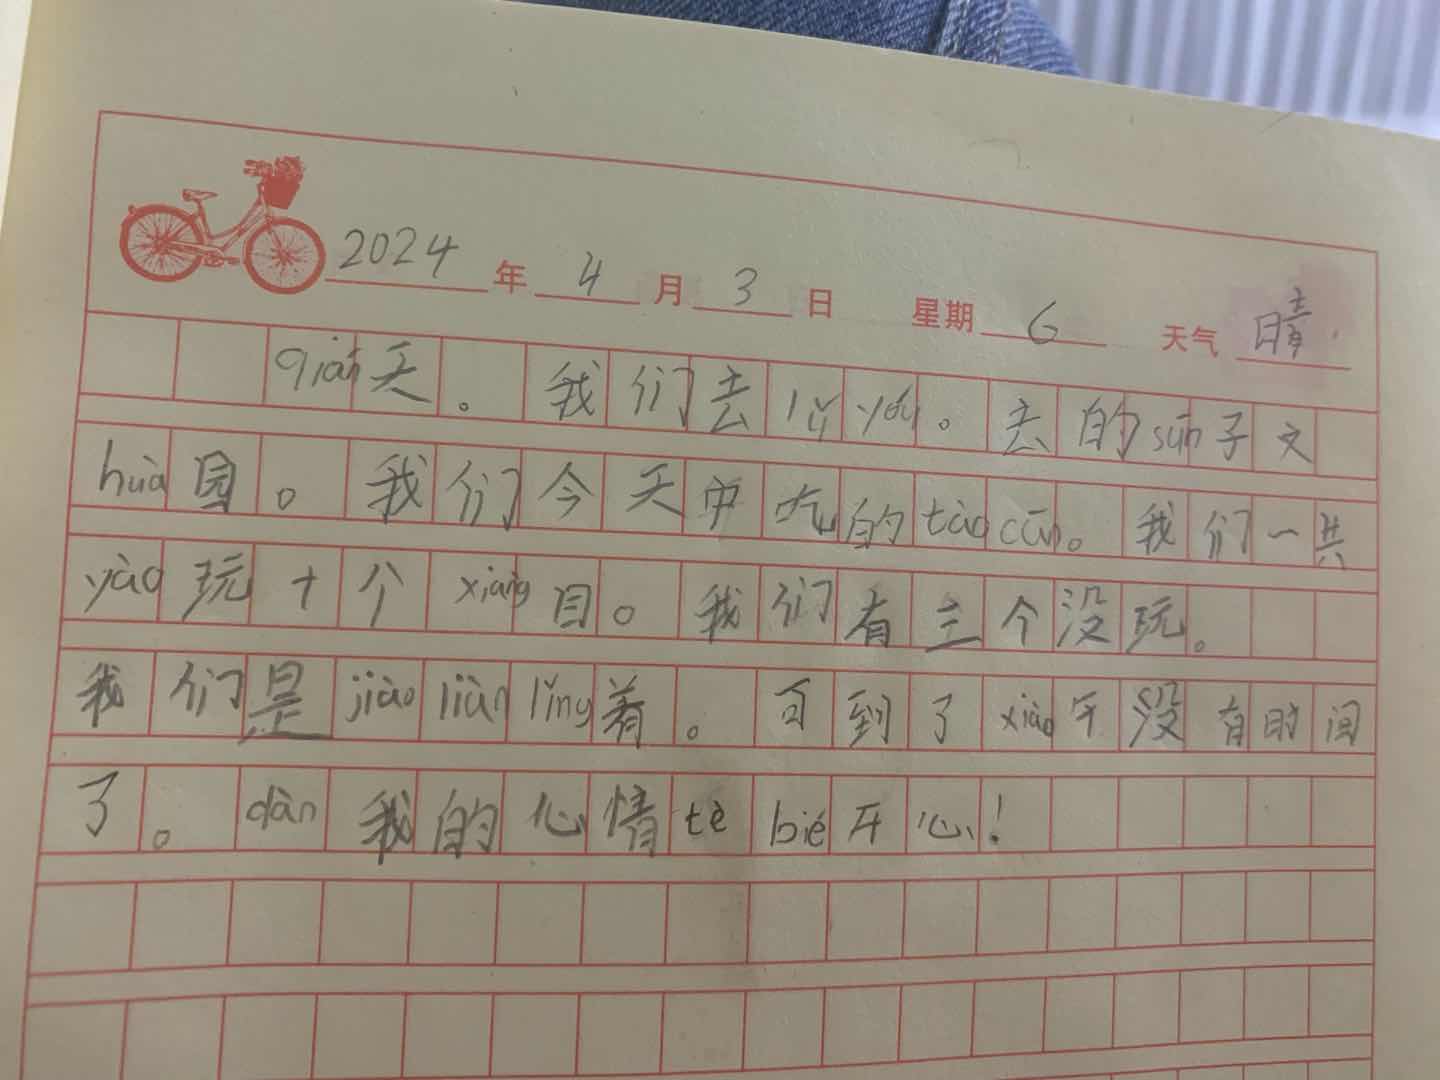 2024年4月3日 星期6 天气晴
qián天。我们去lǚ yóu。去的sūn子文
huà园。我们今天中吃的tào cān。我们一共
yào玩十个xiàng目。我们有三个没玩。
我们是jiào liàn lǐng着。可到了xiào午没有时间
了。dàn我的心情tè bié开心!